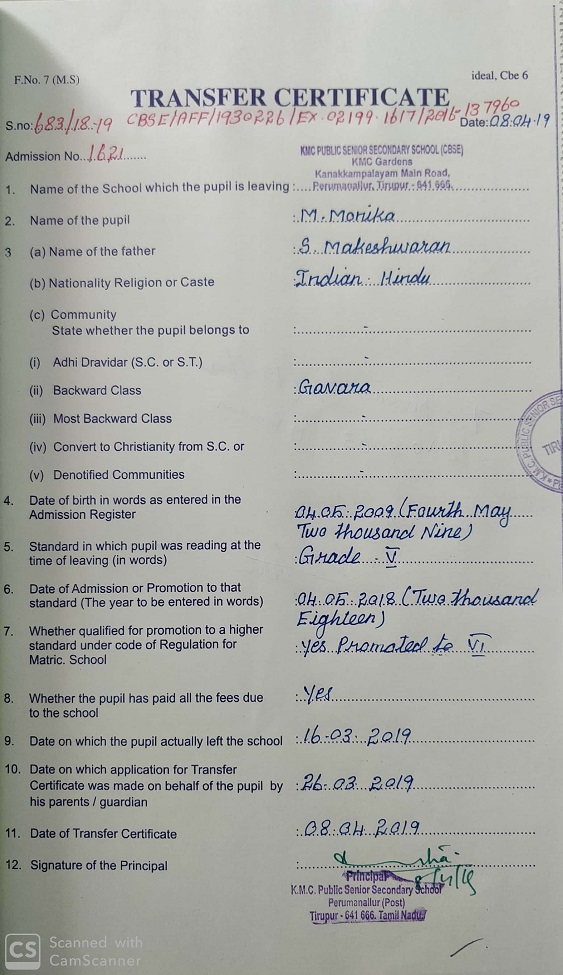 F.No. 7 (M.S)
ideal, Cbe 6
TRANSFER CERTIFICATE
S.no: 683/18-19 CBSE/AFF/1930226/EX-02199-1617/2016-137960
Date: 08.04.19
Admission No. 1621
KMC PUBLIC SENIOR SECONDARY SCHOOL (CBSE)
KMC Gardens
Kanakkampalayam Main Road,
1. Name of the School which the pupil is leaving : Perumanallur, Tirupur - 641 666.
2. Name of the pupil : M. Monika
3 (a) Name of the father : S. Makeshwaran
(b) Nationality Religion or Caste : Indian Hindu
(c) Community
State whether the pupil belongs to : -
(i) Adhi Dravidar (S.C. or S.T.) : -
(ii) Backward Class : Gavara
(iii) Most Backward Class : -
(iv) Convert to Christianity from S.C. or : -
(v) Denotified Communities : -
4. Date of birth in words as entered in the
Admission Register : 04.05.2009 (Fourth May
Two thousand Nine)
5. Standard in which pupil was reading at the
time of leaving (in words) : Grade - V
6. Date of Admission or Promotion to that
standard (The year to be entered in words) : 04.05.2018 (Two thousand
Eighteen)
7. Whether qualified for promotion to a higher
standard under code of Regulation for : Yes Promoted to VI
Matric. School
8. Whether the pupil has paid all the fees due : Yes
to the school
9. Date on which the pupil actually left the school : 16-03-2019
10. Date on which application for Transfer
Certificate was made on behalf of the pupil by : 26.03.2019
his parents / guardian
11. Date of Transfer Certificate : 08.04.2019
12. Signature of the Principal :
Principal
K.M.C. Public Senior Secondary School
Perumanallur (Post)
Tirupur - 641 666. Tamil Nadu
CS Scanned with
CamScanner